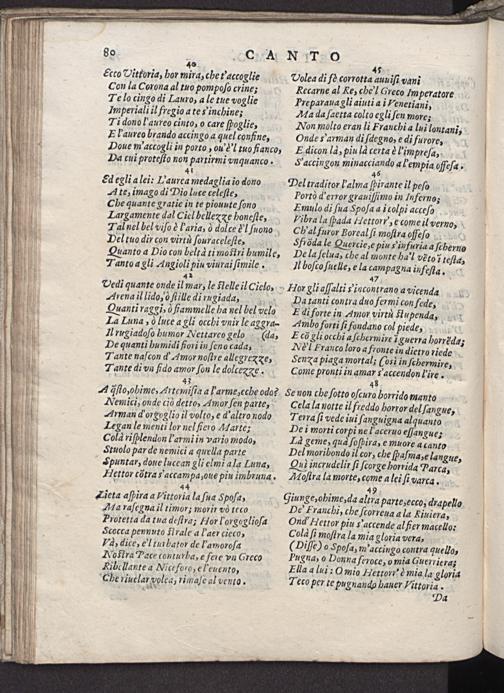 80 CANTO
40
Ecco Vittoria, hor mira, che t'accoglie
Con la Corona al tuo pomposo crine;
Te lo cingo di Lauro, a le tue voglie
Imperiali il fregio a te s'inchine;
Ti dono l'aureo cinto, o care spoglie,
E l'aureo brando accingo a quel confine,
Doue m'accogli in porto, ou'è'l tuo fianco,
Da cui protesto non partirmi vnquanco.
41
Ed egli a lei: L'aurea medaglia io dono
A te, imago di Dio luce celeste,
Che quante gratie in te piouute sono
Largamente dal Ciel bellezze honeste,
Tal nel bel viso è l'aria, ò dolce è'l suono
Del tuo dir con virtù souraceleste,
Quanto a Dio con beltà ti mostri humile,
Tanto a gli Angioli piu viurai simile.
42
Vedi quante onde il mar, le stelle il Cielo,
Arena il lido, ò stille di rugiada,
Quanti raggi, ò fiammelle ha nel bel velo
La Luna, ò luce a gli occhi vnir le aggra-
Il rugiadoso humor Nettareo gelo (da,
De quanti humidi fiori in seno cada,
Tante nascon d'Amor nostre allegrezze,
Tante di vn fido amor son le dolcezze.
43
A q̃sto, ohime, Artemisia a l'arme, eche odo?
Nemici, onde ciò detto, Amor sen parte,
Arman d'orgoglio il volto, e d'altro nodo
Legan le menti lor nel fiero Marte;
Colà risplendon l'armi in vario modo,
Stuolo par de nemici a quella parte
Spuntar, doue lucean gli elmi a la Luna,
Hettor cōtra s'accampa, oue piu imbruna.
44
Lieta aspira a Vittoria la sua Sposa,
Ma rasegna il rimor; morir vò teco
Protetta da tua destra; Hor l'orgogliosa
Scocca pennuto strale a l'aer cieco,
Và, dice, e'l turbator de l'amorosa
Nostra Pace conturba, e fere vn Greco
Ribellante a Niceforo, e l'euento,
Che riuelar volea, rimase al vento.
45
Volea di fè corrotta auuisi vani
Recarne al Re, che'l Greco Imperatore
Preparaua gli aiuti a i Venetiani,
Ma da saetta colto egli sen more;
Non molto eran li Franchi a lui lontani,
Onde s'arman di sdegno, e di furore,
E dicon là, piu là certa è l'impresa,
S'accingon minacciando a l'empia offesa.
46
Del traditor l'alma spirante il peso
Portò d'error grauissimo in Inferno;
Emulo di sua Sposa a i colpi acceso
Vibra la spada Hettorr', e come il verno,
Ch'al furor Boreal si mostra offeso
Sfrōda le Quercie, e piu s'infuria a scherno
De la selua, che al monte ha'l vēto ī testa,
Il bosco suelle, e la campagna infesta.
47
Hor gli assalti s'incontrano a vicenda
Da tanti contra duo fermi con fede,
E di forte in Amor virtù stupenda,
Ambo forti si fondano col piede,
E cō gli occhi a schermire ī guerra horrēda;
Nè'l Franco loro a fronte in dietro riede
Senza piaga mortal; (così in schermire,
Come pronti in amar s'accendon l'ire.
48
Se non che sotto oscuro horrido manto
Cela la notte il freddo horror del sangue,
Terra si vede iui sanguigna alquanto
De i morti corpi ne l'aceruo essangue;
Là geme, quà sospira, e muore a canto
Del moribondo il cor, che spasma, e langue,
Quì incrudelir si scorge horrida Parca,
Mostra la morte, come a lei si varca.
49
Giunge, ohime, da altra parte, ecco, drapello
De' Franchi, che scorreua a la Riuiera,
Ond' Hettor piu s'accende al fier macello:
Colà si mostra la mia gloria vera,
(Disse) o Sposa, m'accingo contra quello,
Pugna, o Donna feroce, o mia Guerriera;
Ella a lui: O mio Hettorr' è mia la gloria
Teco per te pugnando hauer Vittoria.
Da